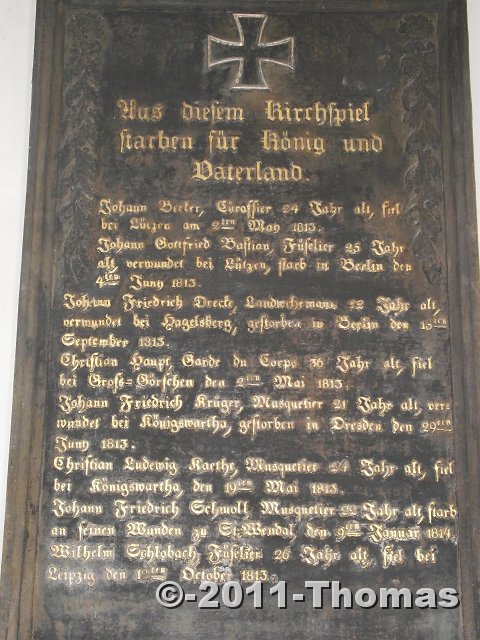 Aus diesem Kirchspiel
starben für König und
Vaterland.
Johann Becker, Cürassier 24 Jahr alt, fiel
bei Lützen am 2ten May 1813.
Johann Gottfried Bastian, Füselier 25 Jahr
alt, verwundet bei Lützen, starb in Berlin den
4ten Juny 1813.
Johann Friedrich Dreche, Landwehrmann 22 Jahr alt,
verwundet bei Hagelsberg, gestorben in Berlin den
September 1813.
Christian Haupt, Garde du Corps 36 Jahr alt, fiel
bei Gross-Görschen den 2ten Mai 1813.
Johann Friedrich Krüger, Musquetier 21 Jahr alt, ver-
wundet bei Königswartha, gestorben in Dresden den 29ten
Juny 1813.
Christian Ludewig Kaethe, Musquetier 24 Jahr alt, fiel
bei Königswartha, den 19ten Mai 1813.
Johann Friedrich Schmoll Musquetier 22 Jahr alt, starb
an seinen Wunden zu St. Wendal, den 9ten Januar 1814.
Wilhelm Schlobach Füselier 26 Jahr alt fiel bei
Leipzig den October 1813.
©-2011-Thomas